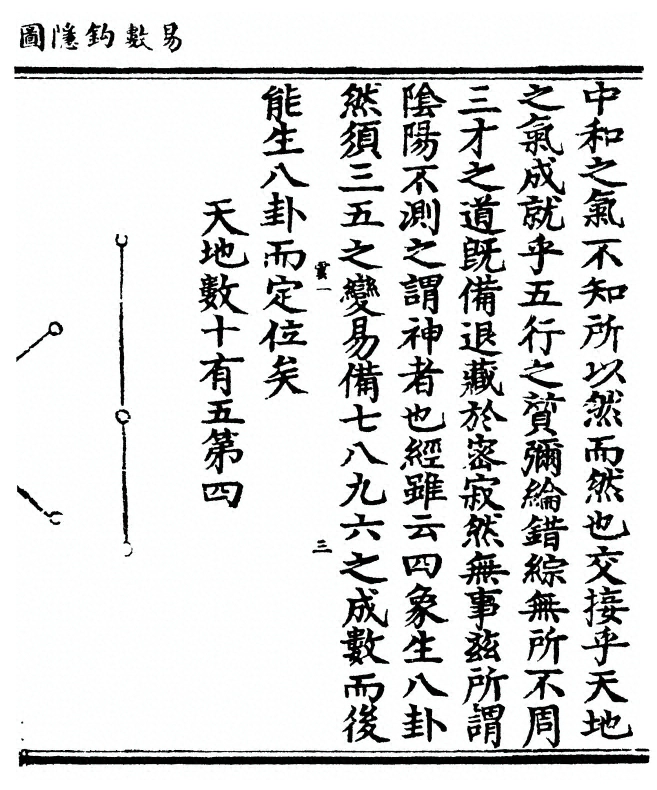 易數鈎隱圖
中和之氣不知所以然而然也交接乎天地
之氣成就乎五行之質彌綸錯綜無所不周
三才之道既備退藏於密寂然無事茲所謂
陰陽不測之謂神者也經雖云四象生八卦
然須三五之變易備七八九六之成數而後
雲一
三
能生八卦而定位矣
天地數十有五第四